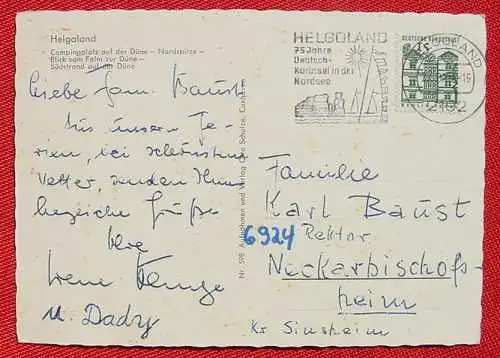 Helgoland
Campingplatz auf der Düne – Nordspitze –
Blick vom Falm zur Düne –
Südstrand auf der Düne
Liebe Fam. Baust
Aus unseren Fe-
rien, bei schönstem
Wetter, senden Ihnen
herzliche Grüße
Ihre
Irene
u. Dady
Nr. 598 Aufnahmen und Verlag Schulze, Cuxhaven
HELGOLAND
75 Jahre
Deutsch-
Kurinsel in der
Nordsee
DEUTSCHE BUNDESPOST
HELGOLAND
2192
Familie
Karl Baust
6924 Rektor
Neckarbischofs-
heim
Kr Sinsheim